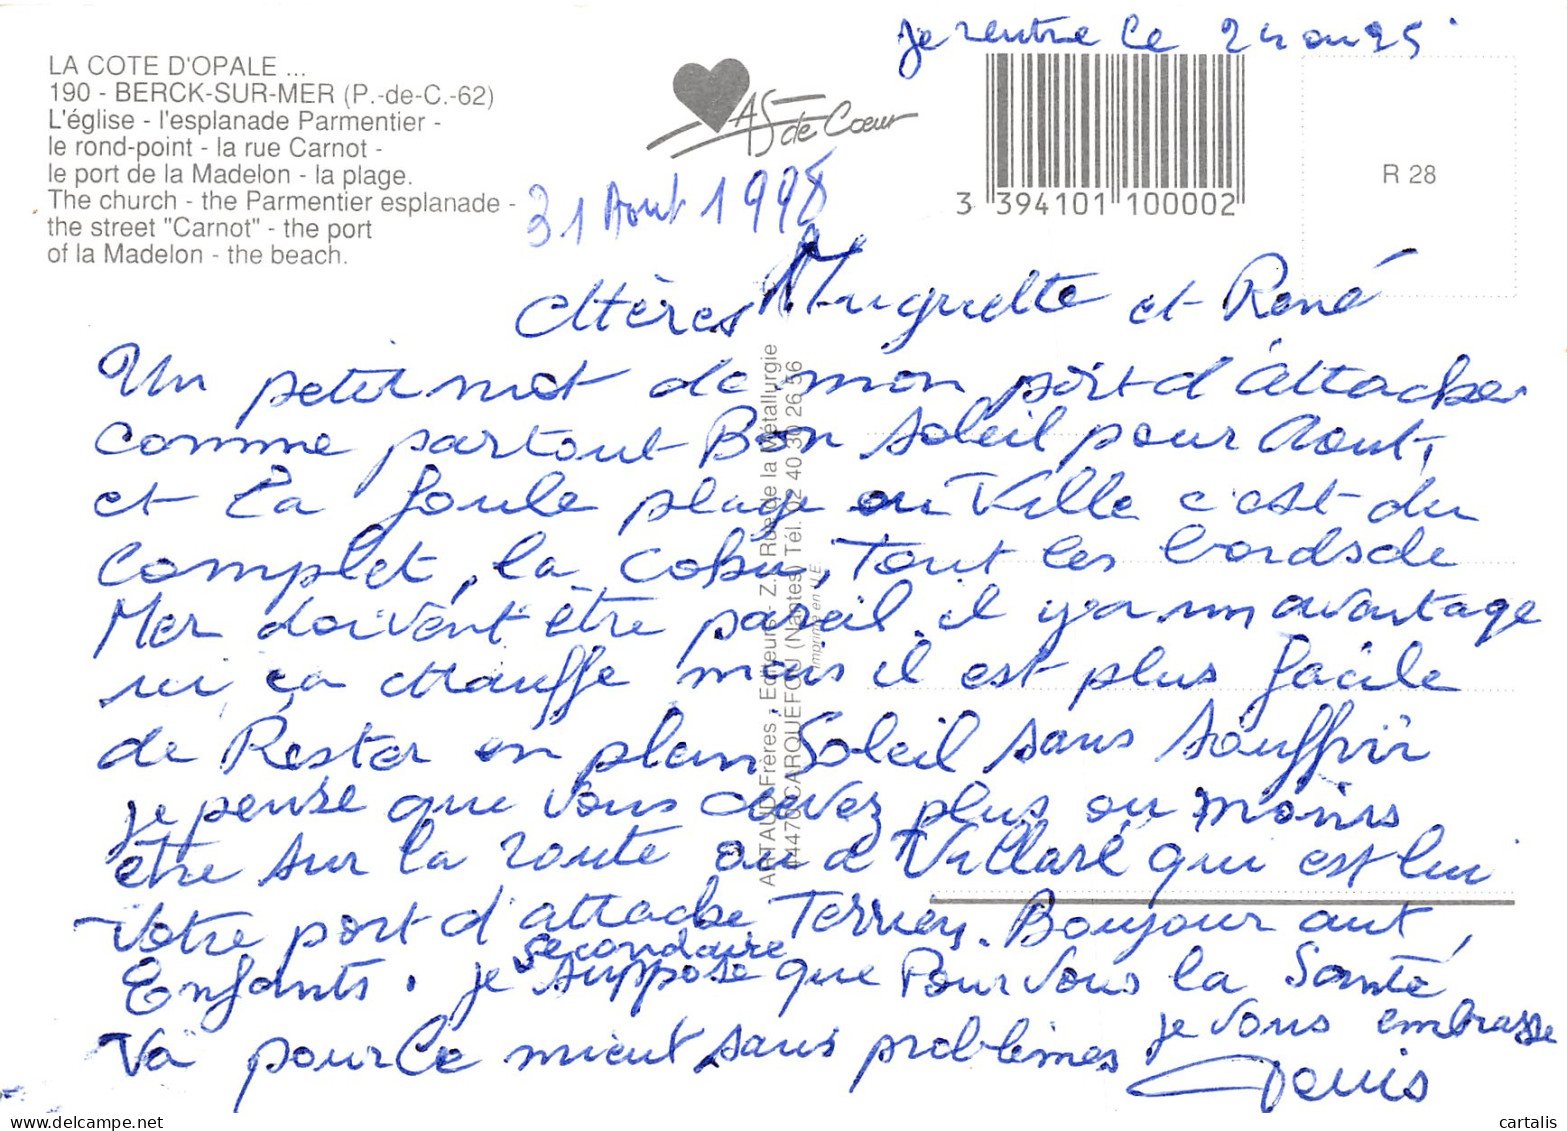 je rentre le 24 ou 25
LA COTE D'OPALE ...
190 - BERCK-SUR-MER (P.-de-C.-62)
L'église - l'esplanade Parmentier -
le rond-point - la rue Carnot -
le port de la Madelon - la plage.
The church - the Parmentier esplanade -
the street "Carnot" - the port
of la Madelon - the beach.
AS de Coeur
3 394101 100002
R 28
31 Aout 1998
chères Muguette et René
Un petit mot de mon port d'attache
comme partout Bon soleil pour Aout,
et La foule plage ou Ville c'est du
complet, la cohu, Tout les bords de
Mer doivent être pareil. il y a un avantage
ici ça chauffe mais il est plus facile
de Rester en plein Soleil sans souffrir
je pense que vous devez plus ou moins
être sur la route ou à Villard qui est lui
Votre port d'attache Terrien. Bonjour aux
secondaire
Enfants. je suppose que Pour vous la Santé
Va pour le mieux sans problèmes. je vous embrasse
Denis
ARTAUD Frères, Editeurs - Z.I. Rue de la Métallurgie
44470 CARQUEFOU (Nantes) Tél. 02 40 30 26 56
Imprimé en U.E.
cartalis
www.delcampe.net